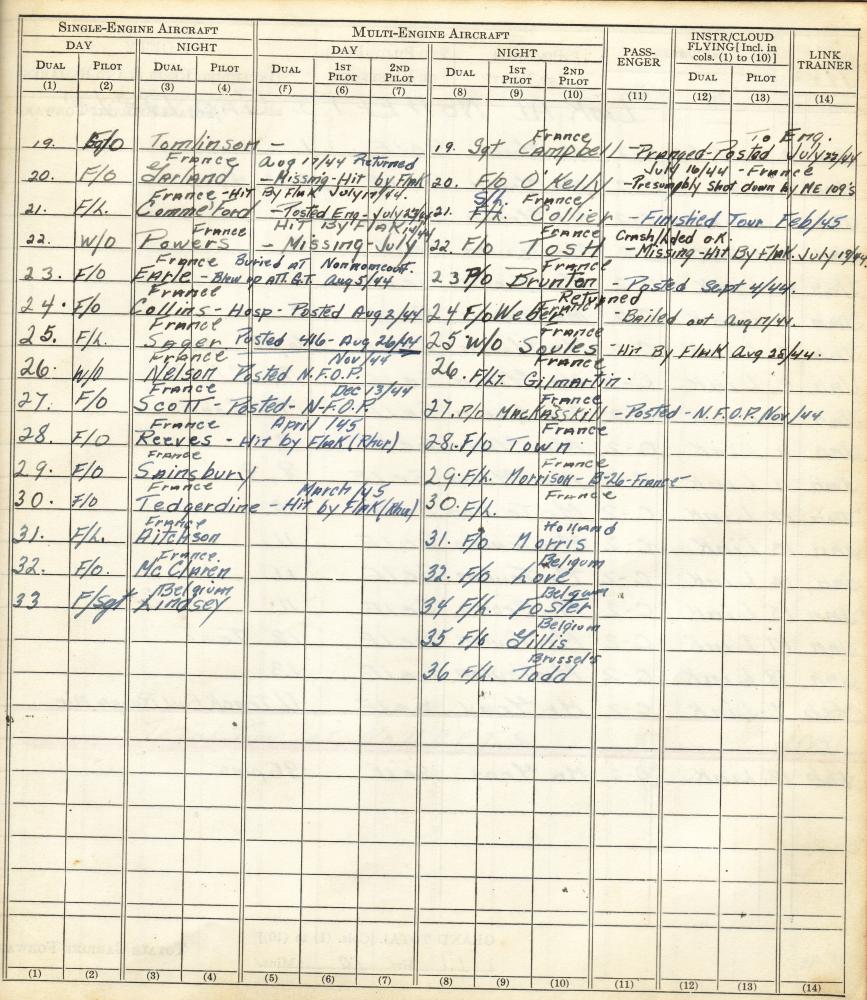 SINGLE-ENGINE AIRCRAFT
MULTI-ENGINE AIRCRAFT
PASS-ENGER
INSTR/CLOUD FLYING [Incl. in cols. (1) to (10)]
LINK TRAINER
DAY NIGHT DAY NIGHT
DUAL PILOT DUAL PILOT DUAL 1ST PILOT 2ND PILOT DUAL 1ST PILOT 2ND PILOT DUAL PILOT
(1) (2) (3) (4) (5) (6) (7) (8) (9) (10) (11) (12) (13) (14)
19. F/O Tomlinson -
France Aug 17/44 Returned
20. F/O Garland - Missing - Hit by Flak
France - Hit By Flak July 17/44.
21. F/L. Commerford - Posted Eng - July 23/44
France Hit By Flak
22. W/O Powers - Missing - July
France Buried at Nonnomcourt.
23. F/O Earle - Blew up Att. G.T. Aug 5/44
France
24. F/O Collins - Hosp - Posted Aug 2/44
France
25. F/L. Sager Posted 416 - Aug 26/44
France Nov/44
26. W/O Nelson Posted N.F.O.P.
France Dec 13/44
27. F/O Scott - Posted - N-F.O.P.
France April/45
28. F/O Reeves - Hit by Flak (Rhur)
France
29. F/O Sainsbury
France March/45
30. F/O Tedgerdine - Hit by Flak (Rhur)
France
31. F/L. Aitchson
France.
32. F/O. McClaren
Belgium
33 F/Sgt Lindsey
France To Eng.
19. Sgt Campbell - Pranged - Posted July 22/44
July 16/44 - France
20. F/O O'Kelly - Presumbly shot down by ME 109's
S/L. France
21. F/L. Collier - Finished Tour Feb/45
France Crash/Lded O.K.
22. F/O Tosh - Missing - Hit By Flak. July 19/44.
France
23 P/O Brunton - Posted Sept 4/44.
Returned
France
24 F/O Weber - Bailed out Aug 17/44.
France
25 W/O Soules - Hit By Flak Aug 28/44.
France
26. F/Lt. Gilmartin.
France
27. P/O MacKasskill - Posted - N.F.O.P. Nov/44
France
28. F/O Town
France
29. F/L. Morrison - B-26 - France -
France
30. F/L.
Holland
31. F/O Morris
Belgium
32. F/O Love
Belgium
34 F/L. Foster
Belgium
35 F/O Gillis
Brussel's
36 F/L. Todd
(1) (2) (3) (4) (5) (6) (7) (8) (9) (10) (11) (12) (13) (14)